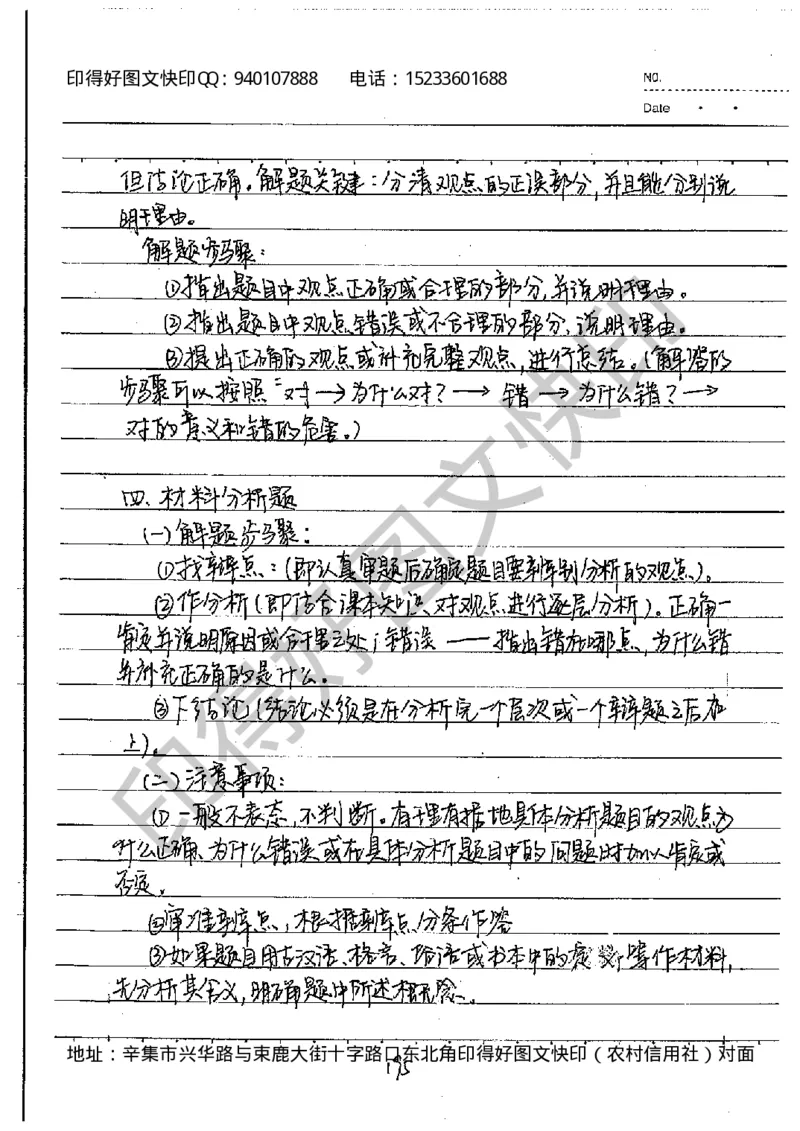 印得好图文快印QQ：940107888 电话：15233601688
NO.
Date
但结论正确。解题关键：分清观点的正误部分，并且能分别说
明理由。
解题步骤：
①指出题目中观点正确或合理的部分，并说明理由。
②指出题目中观点错误或不合理的部分，说明理由。
③提出正确的观点或补充完整观点，进行总结。（解答的
步骤可以按照“对→为什么对？→错→为什么错？→
对的意义和错的危害。）
四、材料分析题
(一)解题步骤：
①找辨点：（即认真审题后确定题目要辨别分析的观点）。
②作分析（即结合课本知识，对观点进行逐层分析）。正确一
肯定并说明原因或合理之处；错误——指出错在哪点，为什么错
并补充正确的是什么。
③下结论（结论必须是在分析完一个层次或一个辨题之后加
上）。
(二)注意事项：
①一般不表态，不判断。有理有据地具体分析题目的观点为
什么正确、为什么错误或在具体分析题目中的问题时加以肯定或
否定。
②审准辨点，根据辨点分条作答
③如果题目用古汉语、格言、俗语或书本中的 等作材料，
先分析其含义，明确题中所述概念。
地址：辛集市兴华路与束鹿大街十字路口东北角印得好图文快印（农村信用社）对面
195
印得好图文快印